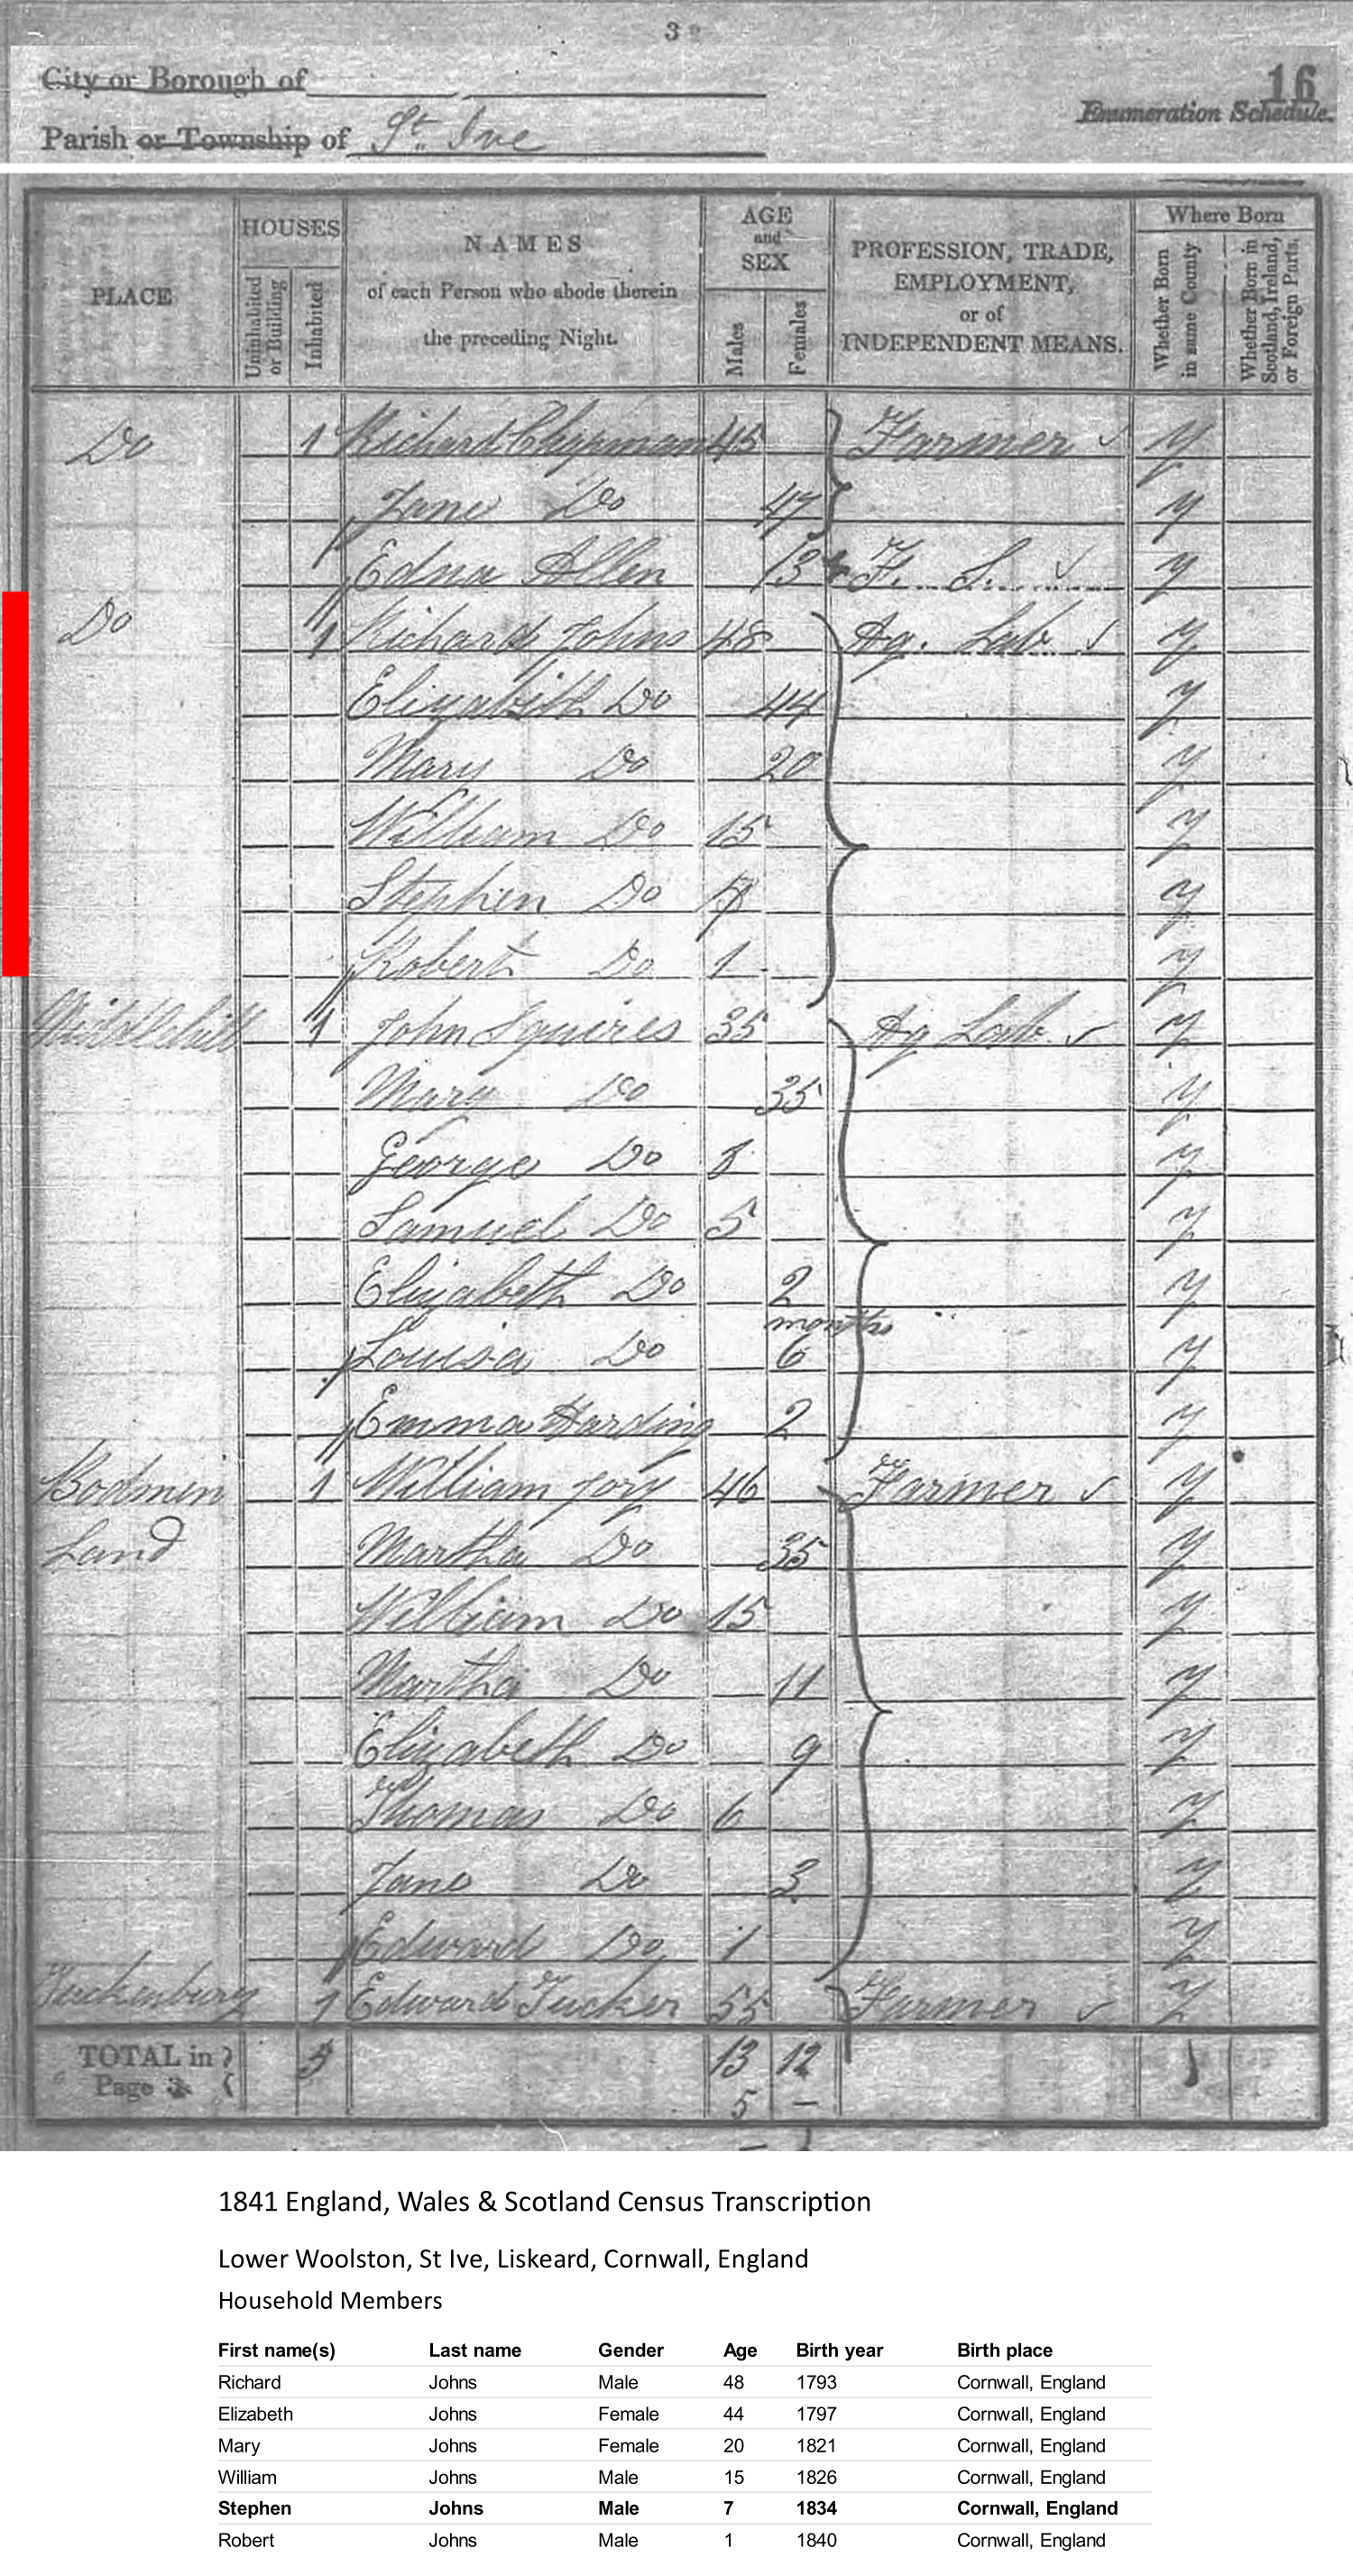 3
City or Borough of
16
Enumeration Schedule.
Parish or Township of St. Ive
PLACE
HOUSES
Uninhabited or Building
Inhabited
NAMES
of each Person who abode therein
the preceding Night.
AGE
and
SEX
Males
Females
PROFESSION, TRADE,
EMPLOYMENT,
or of
INDEPENDENT MEANS.
Where Born
Whether Born in same County
Whether Born in Scotland, Ireland, or Foreign Parts.
Do 1 Richard Chapman 45 Farmer y
Jane Do 47 y
Edna Allen 13 F. S. y
Do 1 Richard Johns 48 Ag. Lab y
Elizabeth Do 44 y
Mary Do 20 y
William Do 15 y
Stephen Do 7 y
Robert Do 1 y
1 John Squires 35 Ag Lab. y
Mary Do 35 y
George Do 8 y
Samuel Do 5 y
Elizabeth Do 2 y
months
Louisa Do 6 y
Emma Harding 2 y
Bodmin 1 William Jory 46 Farmer y
Land Martha Do 35 y
William Do 15 y
Martha Do 11 y
Elizabeth Do 9 y
Thomas Do 6 y
Jane Do 3 y
Edward Do 1 y
1 Edward Tucker 55 Farmer y
TOTAL in 5 13 12
Page 5 —
1841 England, Wales & Scotland Census Transcription
Lower Woolston, St Ive, Liskeard, Cornwall, England
Household Members
First name(s) Last name Gender Age Birth year Birth place
Richard Johns Male 48 1793 Cornwall, England
Elizabeth Johns Female 44 1797 Cornwall, England
Mary Johns Female 20 1821 Cornwall, England
William Johns Male 15 1826 Cornwall, England
Stephen Johns Male 7 1834 Cornwall, England
Robert Johns Male 1 1840 Cornwall, England